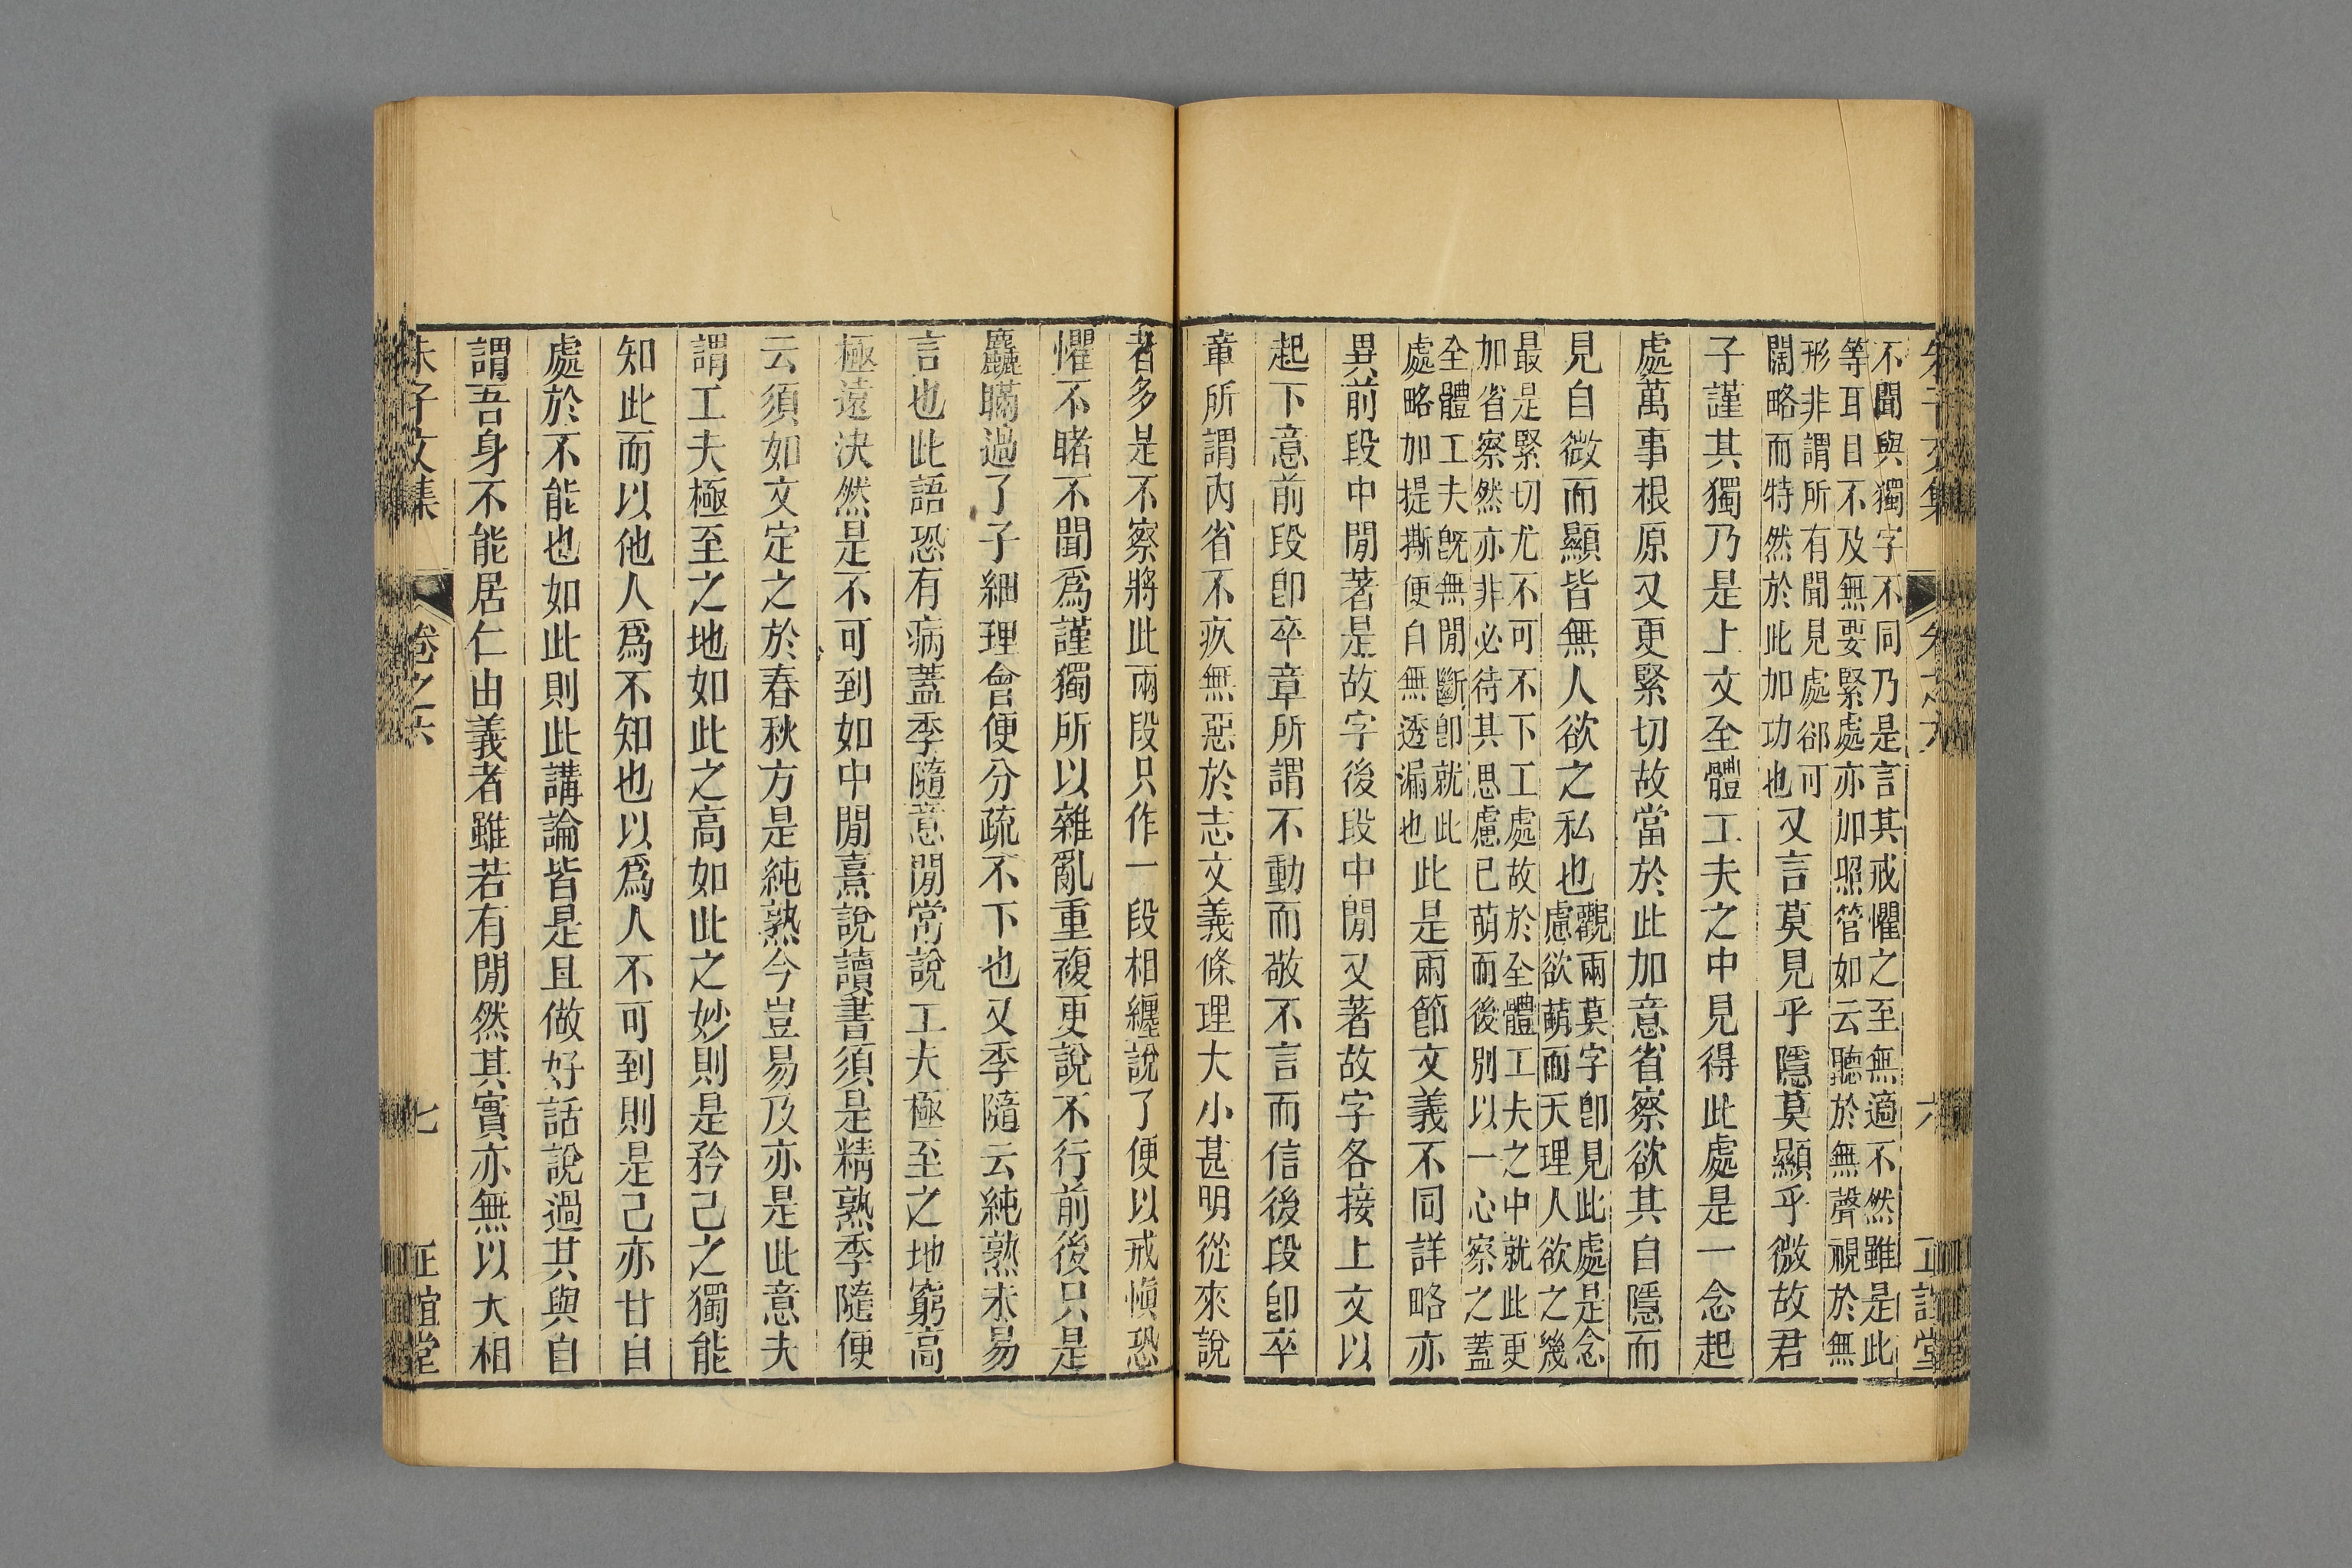 朱子文集 卷之六 六 正誼堂
不聞與獨字不同乃是言其戒懼之至無適不然雖是此
等耳目不及無要緊處亦加照管如云聽於無聲視於無
形非謂所有聞見處卻可
闊略而特然於此加功也又言莫見乎隱莫顯乎微故君
子謹其獨乃是上文全體工夫之中見得此處是一念起
處萬事根原又更緊切故當於此加意省察欲其自隱而
見自微而顯皆無人欲之私也觀兩莫字卽見此處是念
慮欲萌而天理人欲之幾
最是緊切尤不可不下工處故於全體工夫之中就此更
加省察然亦非必待其思慮已萌而後別以一心察之蓋
全體工夫旣無閒斷卽就此
處略加提撕便自無透漏也此是兩節文義不同詳略亦
異前段中閒著是故字後段中閒又著故字各接上文以
起下意前段卽卒章所謂不動而敬不言而信後段卽卒
章所謂內省不疚無惡於志文義條理大小甚明從來說
者多是不察將此兩段只作一段相纏說了便以戒愼恐
懼不睹不聞爲謹獨所以雜亂重複更說不行前後只是
麤瞞過了子細理會便分疏不下也又季隨云純熟未易
言也此語恐有病蓋季隨意閒常說工夫極至之地窮高
極遠決然是不可到如中閒熹說讀書須是精熟季隨便
云須如文定之於春秋方是純熟今豈易及亦是此意夫
謂工夫極至之地如此之高如此之妙則是矜己之獨能
知此而以他人爲不知也以爲人不可到則是己亦甘自
處於不能也如此則此講論皆是且做好話說過其與自
謂吾身不能居仁由義者雖若有閒然其實亦無以大相
朱子文集 卷之六 七 正誼堂